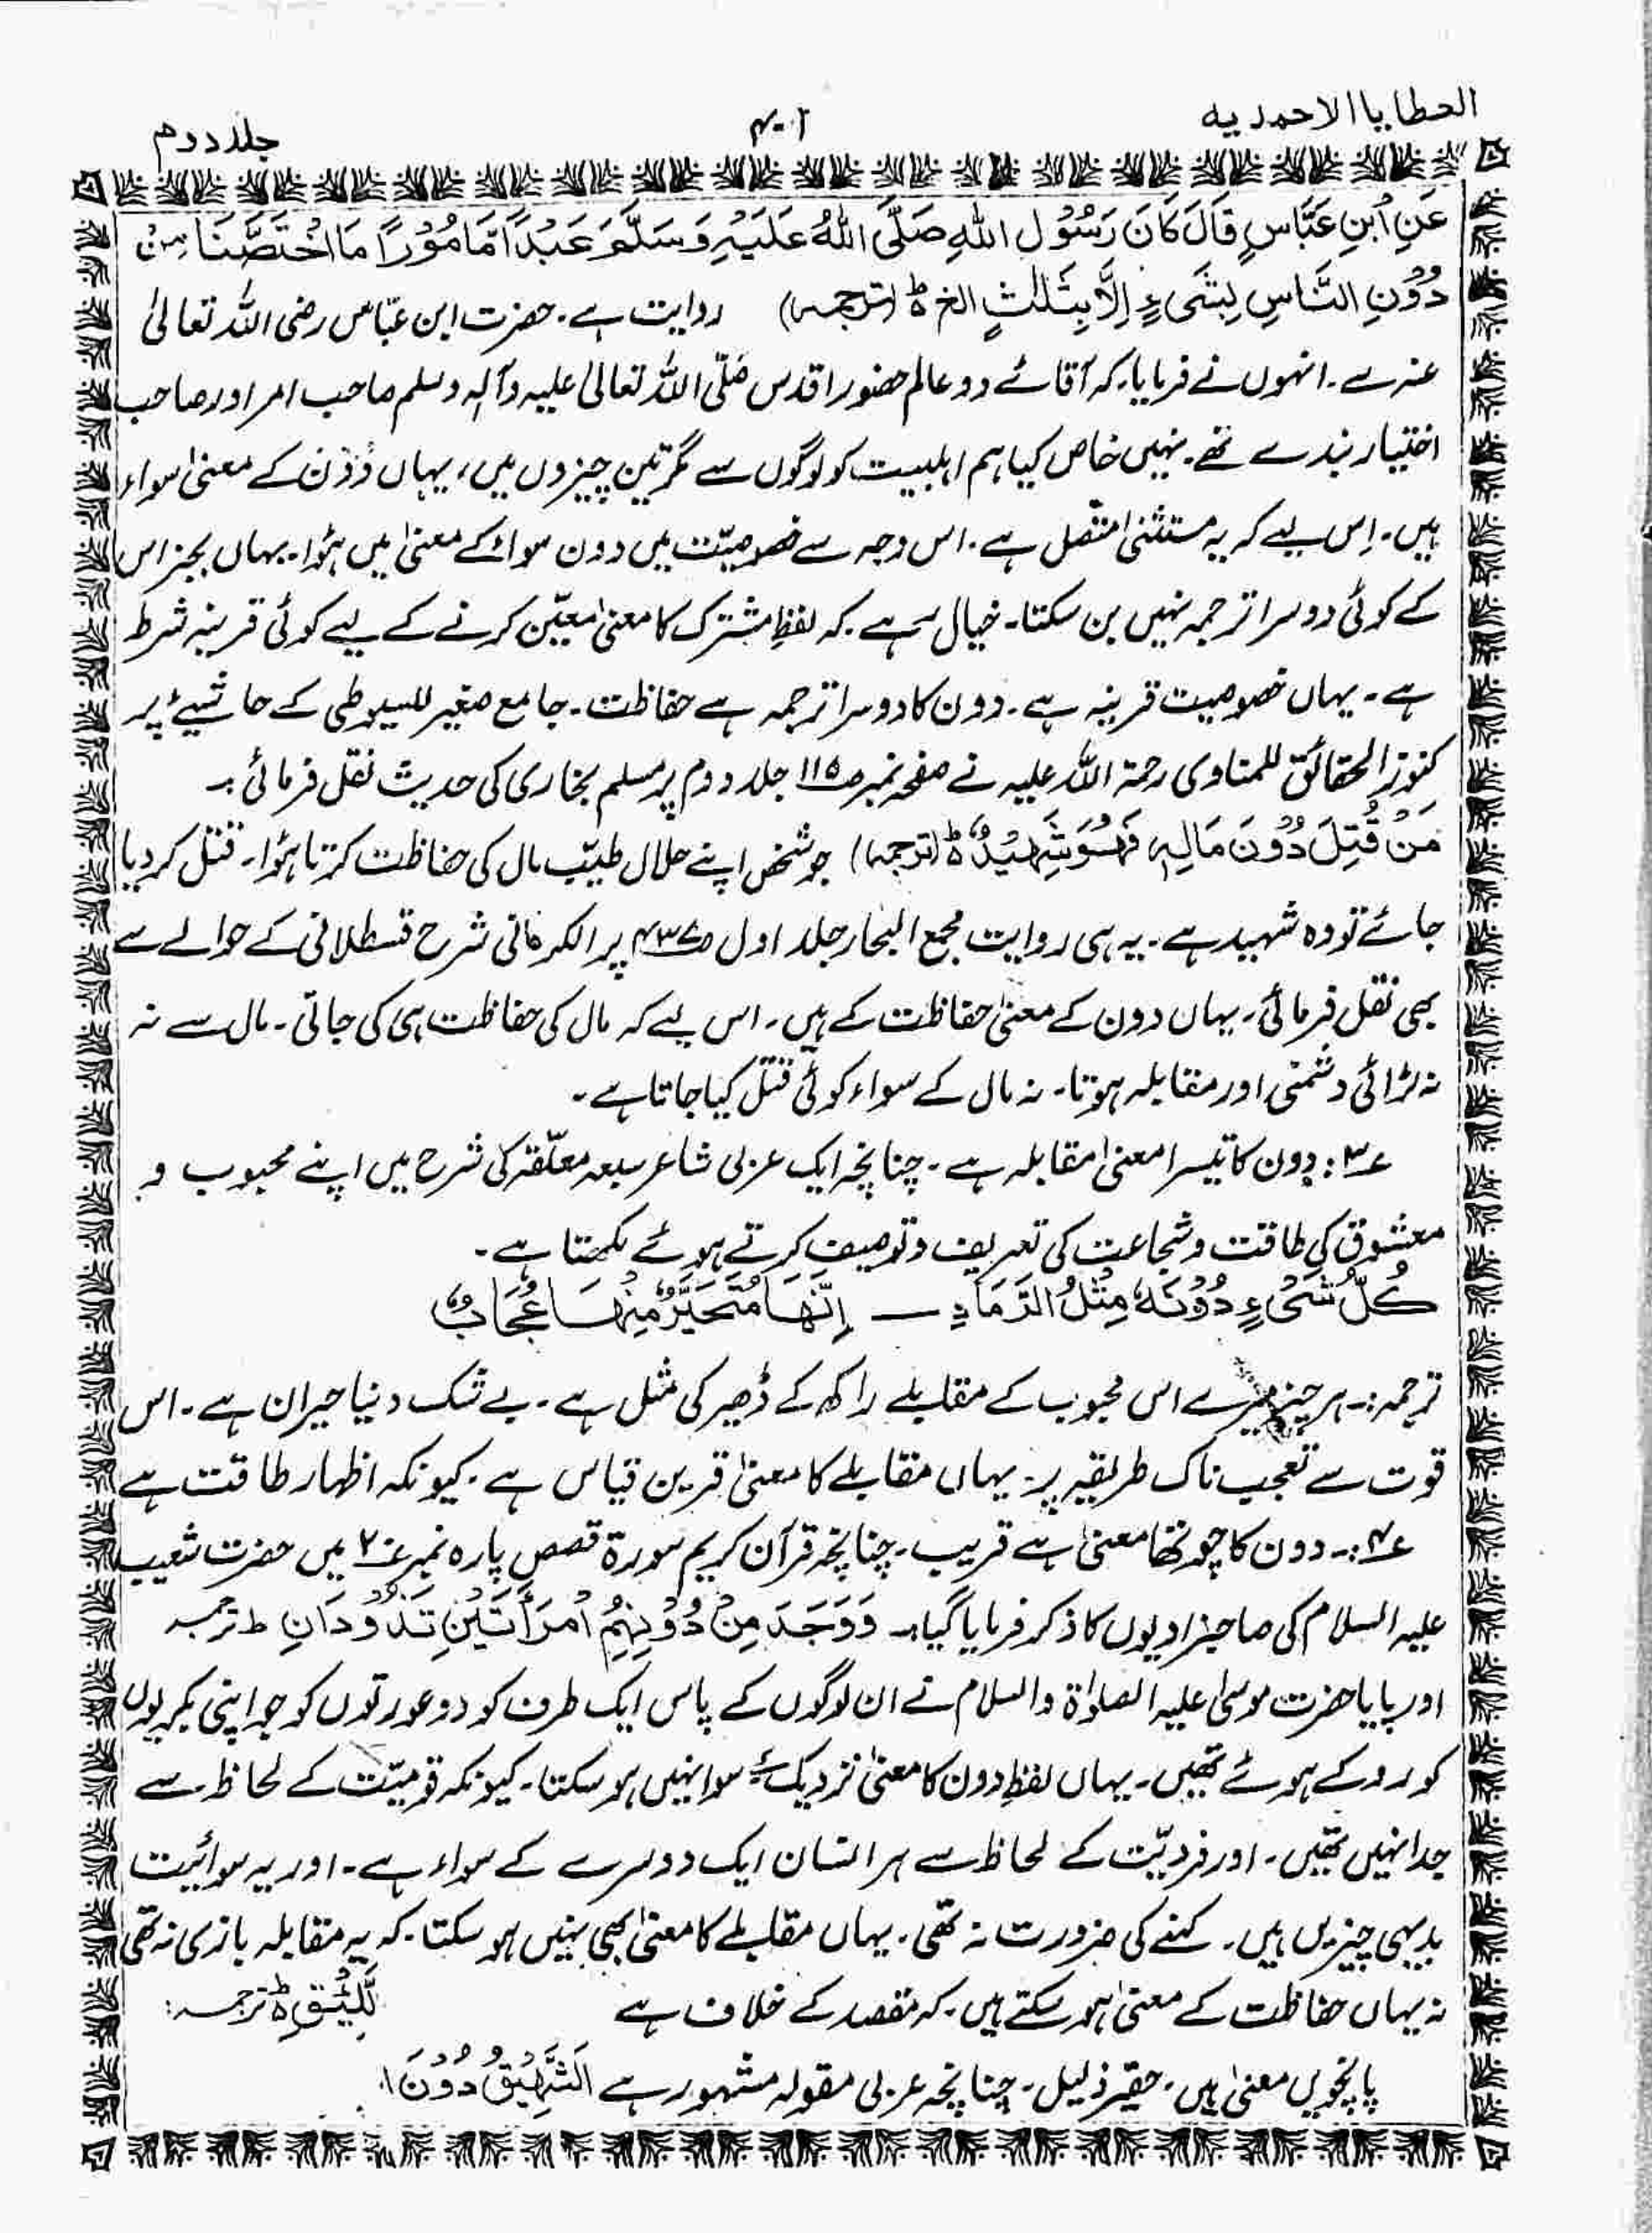 العطایا الاحمدیه
۴۰۱
جلد دوم
عَنِ ابْنِ عَبَّاسٍ قَالَ كَانَ رَسُوْلُ اللّٰهِ صَلَّى اللّٰهُ عَلَيْهِ وَسَلَّمَ عَبْدًا مَّامُوْرًا مَا اخْتَصَّنَا مِنْ
دُوْنِ النَّاسِ بِشَىْءٍ اِلَّا بِثَلٰثٍ الخ ط (ترجمہ) روایت ہے۔ حضرت ابن عبّاس رضی اللہ تعالیٰ
عنہ سے۔ انہوں نے فرمایا۔ کہ آقائے دو عالم حضور اقدس صلّی اللہ تعالیٰ علیہ وآلہٖ وسلم صاحب امر اور صاحب
اختیار بندے تھے۔ نہیں خاص کیا ہم اہلبیت کو لوگوں سے مگر تین چیزوں میں، یہاں دُوْن کے معنیٰ سواء
ہیں۔ اِس لیے کہ یہ مستثنیٰ متّصل ہے۔ اس وجہ سے خصوصیّت میں دون سواء کے معنیٰ میں ہؤا۔ یہاں بجز اس
کے کوئی دوسرا ترجمہ نہیں بن سکتا۔ خیال رہے۔ کہ لفظِ مشترک کا معنیٰ معیّن کرنے کے لیے کوئی قرینہ شرط
ہے۔ یہاں خصوصیت قرینہ ہے۔ دون کا دوسرا ترجمہ ہے حفاظت۔ جامع صغیر للسیوطی کے حاشیۓ پر
کنوز الحقائق للمناوی رحمۃ اللہ علیہ نے صفحہ نمبر ۱۱۵ جلد دوم پر مسلم بخاری کی حدیث نقل فرمائی :۔
مَنْ قُتِلَ دُوْنَ مَالِهٖ فَهُوَ شَهِيْدٌ ط (ترجمہ) جو شخص اپنے حلال طیّب مال کی حفاظت کرتا ہؤا۔ قتل کر دیا
جائے تو وہ شہید ہے۔ یہ ہی روایت مجمع البحار جلد اول ص۴۳۷ پر الکرمانی شرح قسطلانی کے حوالے سے
بھی نقل فرمائی۔ یہاں دون کے معنیٰ حفاظت کے ہیں۔ اس لیے کہ مال کی حفاظت ہی کی جاتی۔ مال سے نہ
نہ لڑائی دشمنی اور مقابلہ ہوتا۔ نہ مال کے سواء کوئی قتل کیا جاتا ہے۔
۳؎: دون کا تیسرا معنیٰ مقابلہ ہے۔ چنانچہ ایک عربی شاعر سبعہ معلّقہ کی شرح میں اپنے محبوب و
معشوق کی طاقت و شجاعت کی تعریف و توصیف کرتے ہوئے لکھتا ہے۔
كُلُّ شَىْءٍ دُوْنَهٗ مِثْلُ الرَّمَادِ — اِنَّهَا مُتَحَيَّرٌ مِنْهَا عُجَابٌ
ترجمہ:۔ ہر چیز میرے اس محبوب کے مقابلے راکھ کے ڈھیر کی مثل ہے۔ بے شک دنیا حیران ہے۔ اس
قوت سے تعجب ناک طریقہ پر۔ یہاں مقابلے کا معنیٰ قرین قیاس ہے۔ کیونکہ اظہار طاقت ہے
۴؎:۔ دون کا چوتھا معنیٰ ہے قریب۔ چنانچہ قرآن کریم سورۃ قصص پارہ نمبر ۲۰ میں حضرت شعیب
علیہ السلام کی صاحبزادیوں کا ذکر فرمایا گیا:۔ وَوَجَدَ مِنْ دُوْنِهِمُ امْرَأَتَيْنِ تَذُوْدَانِ ط ترجمہ
اور پایا حضرت موسیٰ علیہ الصلوٰۃ والسلام نے ان لوگوں کے پاس ایک طرف کو دو عورتوں کو جو اپنی بکریوں
کو روکے ہوئے تھیں۔ یہاں لفظِ دون کا معنیٰ نزدیک ہے سوا نہیں ہو سکتا۔ کیونکہ قومیّت کے لحاظ سے
جدا نہیں تھیں۔ اور فردیّت کے لحاظ سے ہر انسان ایک دوسرے کے سواء ہے۔ اور یہ سوائیت
بدیہی چیزیں ہیں۔ کہنے کی ضرورت نہ تھی۔ یہاں مقابلے کا معنیٰ بھی نہیں ہو سکتا۔ کہ یہ مقابلہ بازی نہ تھی
نہ یہاں حفاظت کے معنیٰ ہو سکتے ہیں۔ کہ مقصد کے خلاف ہے لِّلِيْئَقِ ط ترجمہ:
پانچویں معنیٰ ہیں۔ حقیر ذلیل۔ چنانچہ عربی مقولہ مشہور ہے اَلشَّهِيْقُ دُوْنَ ا